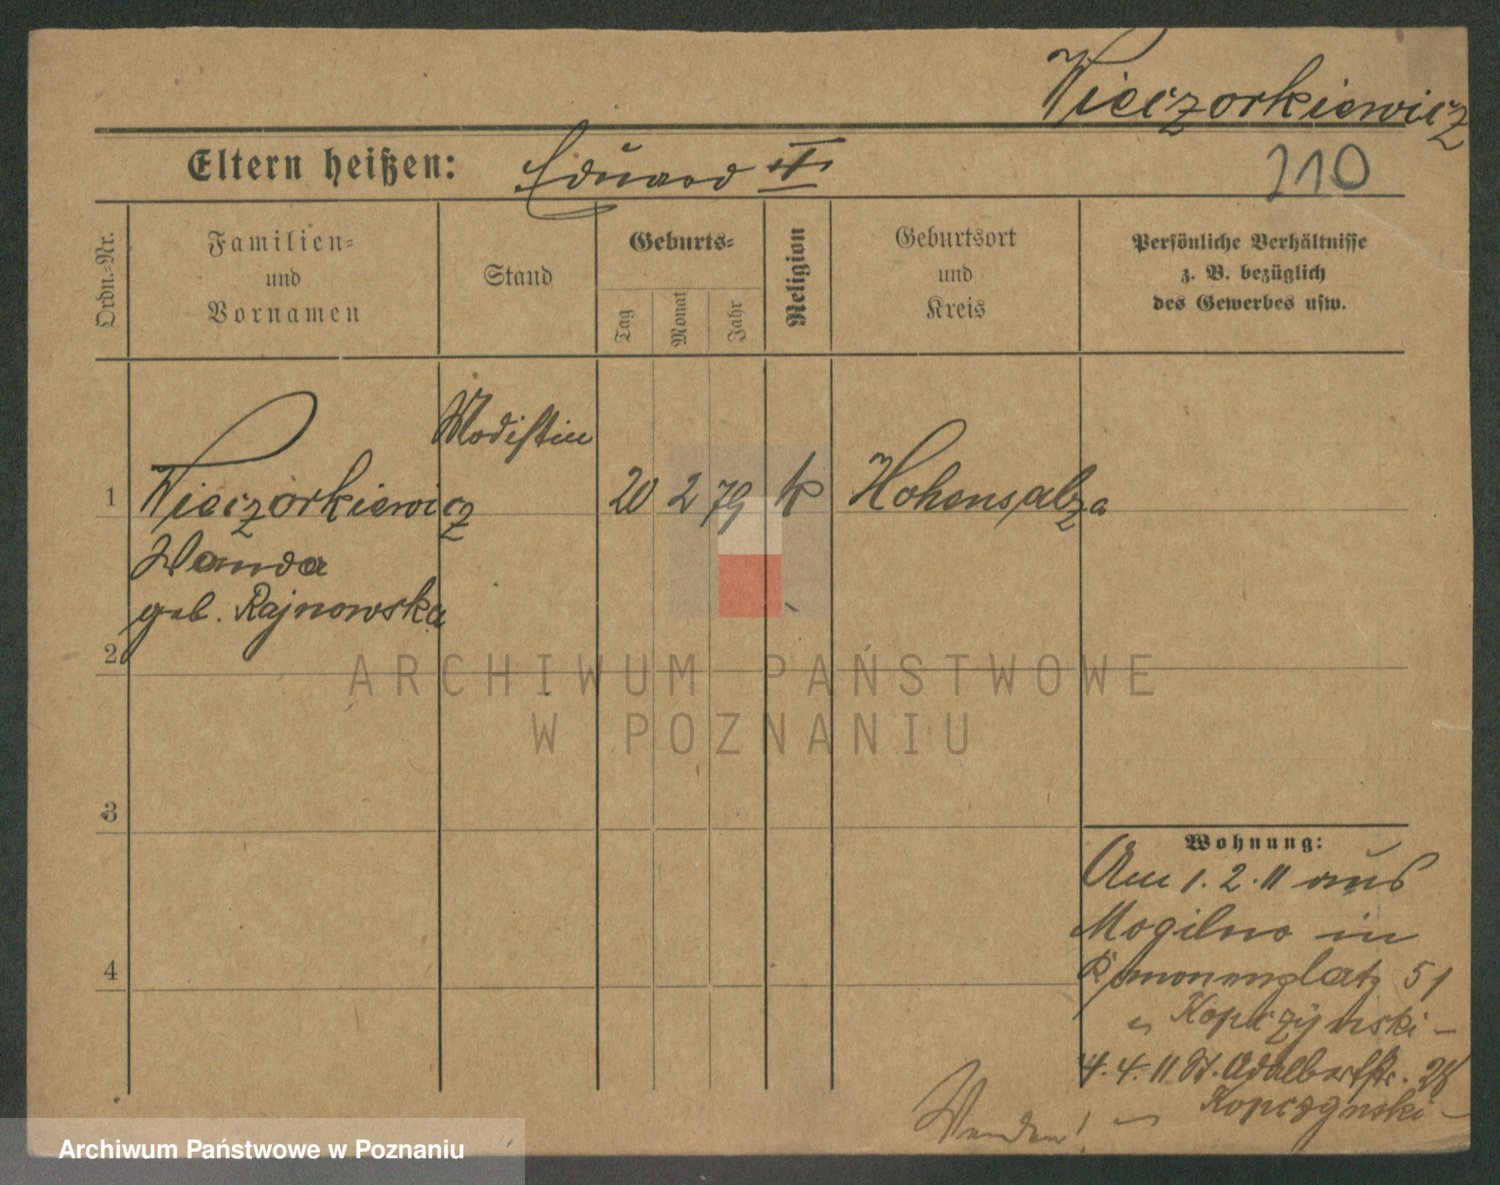 Wieczorkiewicz
Eltern heißen: Eduard II
210
Ordn.-Nr.
Familien-
und
Vornamen
Stand
Geburts-
Tag
Monat
Jahr
Religion
Geburtsort
und
Kreis
Persönliche Verhältnisse
z. B. bezüglich
des Gewerbes usw.
Modistin
1 Wieczorkiewicz 20 2 79 k Hohensalza
Wanda
geb. Rajnowska
2
3
4
Wohnung:
Am 1. 2. 11 aus
Mogilno in
51
Kopczynski -
4. 4. 11 St. Adalbertstr. 28
Kopczynski -
Wenden!
ARCHIWUM PAŃSTWOWE
W POZNANIU
Archiwum Państwowe w Poznaniu